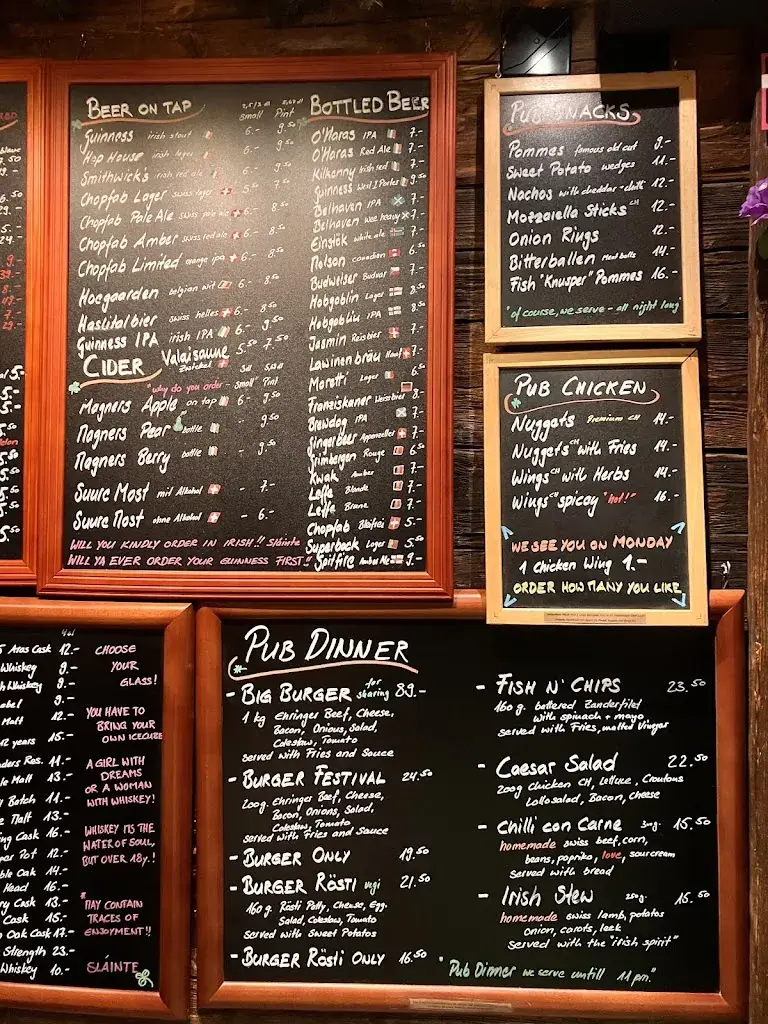 BEER ON TAP
small Pint
Guinness irish stout 6.- 9.50
Hop House irish lager 6.- 9.50
Smithwick's irish red ale 6.- 9.50
Chopfab Lager swiss lager 5.50 7.50
Chopfab Pale Ale swiss pale ale 6.- 8.50
Chopfab Amber swiss red ale 6.- 8.50
Chopfab Limited orange ipa 6.- 8.50
Hoegaarden belgian wit 6.- 8.50
Haslitalbier swiss helles 6.- 8.50
Guinness IPA irish IPA 6.- 9.50
Valaisanne Zwickel 5.50 7.50
CIDER
"why do you order - small" Pint
Magners Apple on tap 6.- 9.50
Magners Pear bottle 9.50
Magners Berry bottle 9.50
Suure Most mit Alkohol 7.-
Suure Most ohne Alkohol 6.-
WILL YOU KINDLY ORDER IN IRISH!! Sláinte
WILL YA EVER ORDER YOUR GUINNESS FIRST!!
BOTTLED BEER
O'Haras IPA 7.-
O'Haras Red Ale 7.-
Kilkenny Irish red 7.-
Guinness West I Porter 9.50
Belhaven IPA 7.-
Belhaven wee heavy 7.-
Einstök white ale 7.-
Molson canadian 6.50
Budweiser Budvar
Hobgoblin Lager
Hobgoblin IPA
Jasmin Reisbier
Lawinenbräu Hanf
Moretti Lager
Franziskaner Weissbier
Brewdog IPA
Gingerbeer Appenzeller
Grimbergen Rouge
Kwak Amber
Leffe Blonde
Leffe Brune
Chopfab Bleifrei 5.-
Superbock Lager 5.50
Spitfire Amber Ale 9.-
PUB SNACKS
Pommes famous old cut 9.-
Sweet Potato wedges 11.-
Nachos with cheddar-chilli 12.-
Mozzarella Sticks CH 12.-
Onion Rings 12.-
Bitterballen Meat balls 14.-
Fish "Knusper" Pommes 16.-
"of course, we serve - all night long"
PUB CHICKEN
Nuggets Premium CH 14.-
Nuggets CH with Fries 14.-
Wings CH with Herbs 14.-
Wings CH spicey "hot!" 16.-
WE SEE YOU ON MONDAY
1 Chicken Wing 1.-
ORDER HOW MANY YOU LIKE
Aras Cask 12.-
Whiskey 9.-
Whiskey 9.-
9.-
Malt 12.-
12 years 15.-
Res. 11.-
Malt 13.-
Batch 11.-
Malt 13.-
Cask 16.-
Pot 12.-
Oak 14.-
Head 16.-
Cask 13.-
Cask 15.-
Oak Cask 17.-
Strength 23.-
Whiskey 10.-
CHOOSE
YOUR
GLASS!
YOU HAVE TO
BRING YOUR
OWN ICECUBE
A GIRL WITH
DREAMS
OR A WOMAN
WITH WHISKEY!
WHISKEY ITS THE
WATER OF SOUL,
BUT OVER 18y.!
"MAY CONTAIN
TRACES OF
ENJOYMENT!!
SLÁINTE
PUB DINNER
- BIG BURGER for sharing 89.-
1 kg Ehringer Beef, Cheese,
Bacon, Onions, Salad,
Coleslaw, Tomato
served with Fries and Sauce
- BURGER FESTIVAL 24.50
200g. Ehringer Beef, Cheese,
Bacon, Onions, Salad,
Coleslaw, Tomato
served with Fries and Sauce
- BURGER ONLY 19.50
- BURGER RÖSTI vegi 21.50
160g. Rösti Patty, Cheese, Egg,
Salad, Coleslaw, Tomato
served with Sweet Potatos
- BURGER Rösti ONLY 16.50
- FISH N' CHIPS 23.50
160g. battered Zanderfilet
with spinach + mayo
served with Fries, malted Vinegar
- Caesar Salad 22.50
200g Chicken CH, Lettuce, Croutons
Lollosalad, Bacon, cheese
- Chilli con Carne 15.50
homemade swiss beef, corn,
beans, paprika, love, sourcream
served with bread
- Irish Stew 250g. 15.50
homemade swiss lamb, potatos
onion, carots, leek
served with the "irish spirit"
"Pub Dinner we serve untill 11pm."